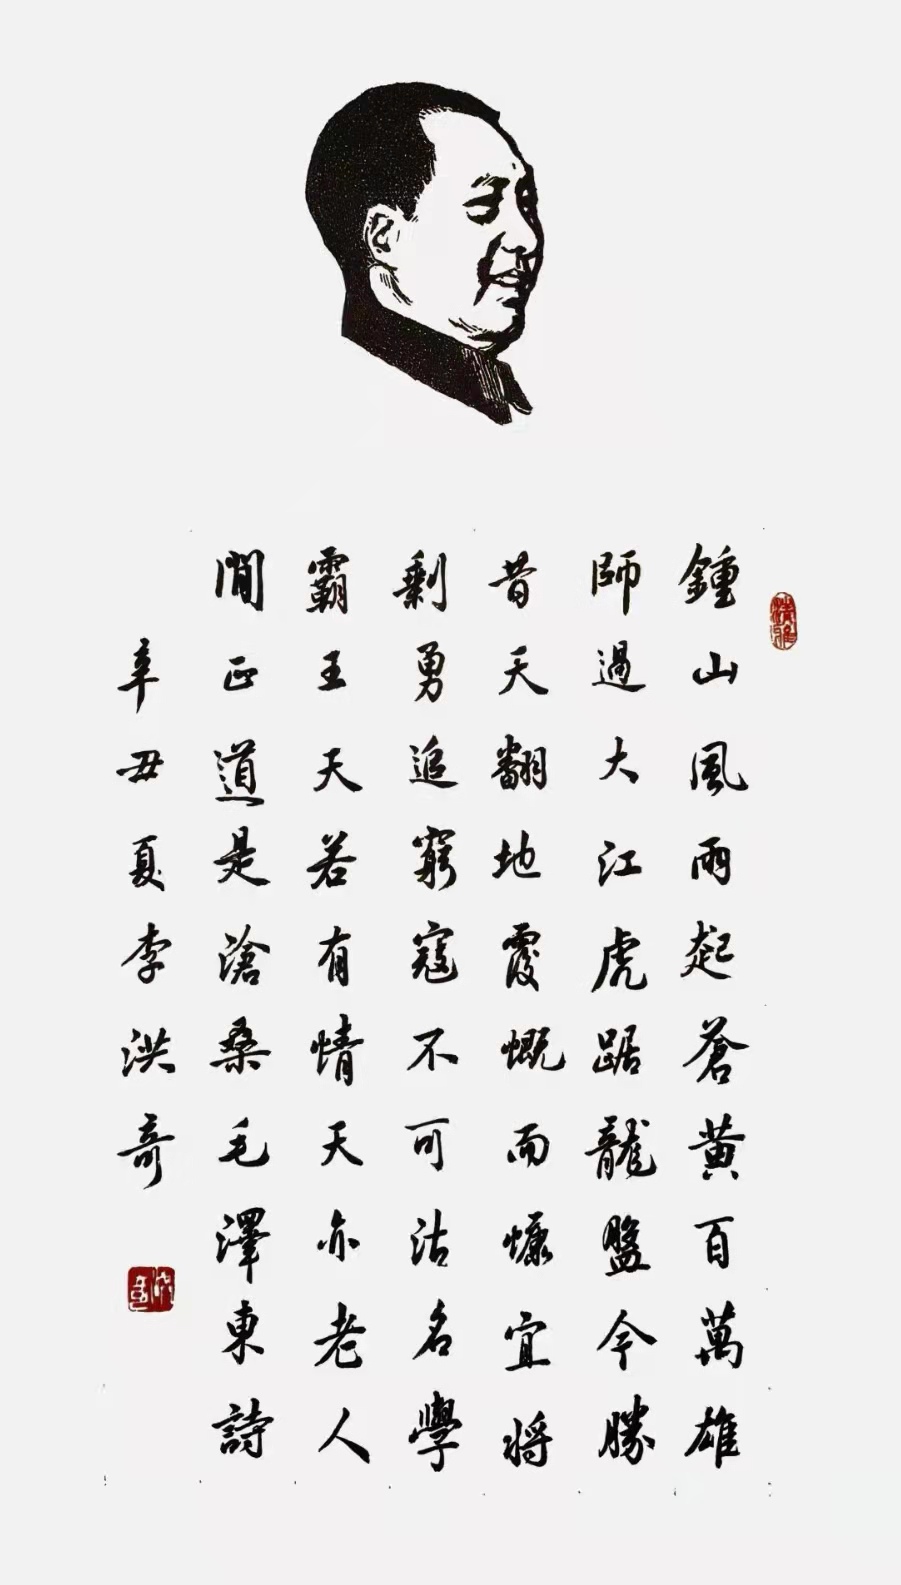 鍾山風雨起蒼黄百萬雄
師過大江虎踞龍盤今勝
昔天翻地覆慨而慷宜将
剩勇追窮寇不可沽名學
霸王天若有情天亦老人
間正道是滄桑毛澤東詩
辛丑夏李洪奇